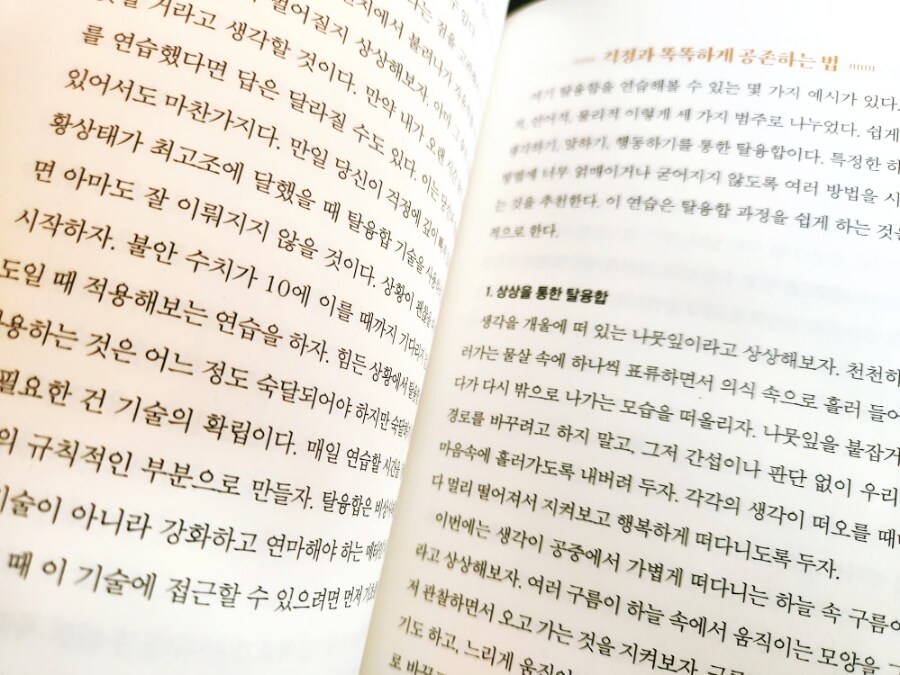 벌어질지 상상해보자. 아마
거라고 생각할 것이다. 만약 내가 오랜
를 연습했다면 답은 달라질 수도 있다. 이는
있어서도 마찬가지다. 만일 당신이 걱정에 깊이
황상태가 최고조에 달했을 때 탈융합 기술을
면 아마도 잘 이뤄지지 않을 것이다. 상황이
시작하자. 불안 수치가 10에 이를 때까지
도일 때 적용해보는 연습을 하자. 힘든 상황에서
용하는 것은 어느 정도 숙달되어야 하지만
필요한 건 기술의 확립이다. 매일 연습할 시간을
의 규칙적인 부분으로 만들자. 탈융합은
기술이 아니라 강화하고 연마해야 하는
때 이 기술에 접근할 수 있으려면 먼저
걱정과 똑똑하게 공존하는 법
여기 탈융합을 연습해볼 수 있는 몇 가지 예시가 있다.
적, 언어적, 물리적 이렇게 세 가지 범주로 나누었다. 쉽게
생각하기, 말하기, 행동하기를 통한 탈융합이다. 특정한
방법에 너무 얽매이거나 굳어지지 않도록 여러 방법을 시
는 것을 추천한다. 이 연습은 탈융합 과정을 쉽게 하는 것을
적으로 한다.
1. 상상을 통한 탈융합
생각을 개울에 떠 있는 나뭇잎이라고 상상해보자. 천천히
러가는 물살 속에 하나씩 표류하면서 의식 속으로 흘러 들어
다가 다시 밖으로 나가는 모습을 떠올리자. 나뭇잎을 붙잡거
경로를 바꾸려고 하지 말고, 그저 간섭이나 판단 없이 우리
마음속에 흘러가도록 내버려 두자. 각각의 생각이 떠오를 때마
다 멀리 떨어져서 지켜보고 행복하게 떠다니도록 두자.
이번에는 생각이 공중에서 가볍게 떠다니는 하늘 속 구름이
라고 상상해보자. 여러 구름이 하늘 속에서 움직이는 모양을
저 관찰하면서 오고 가는 것을 지켜보자.
기도 하고, 느리게
로 바꾸